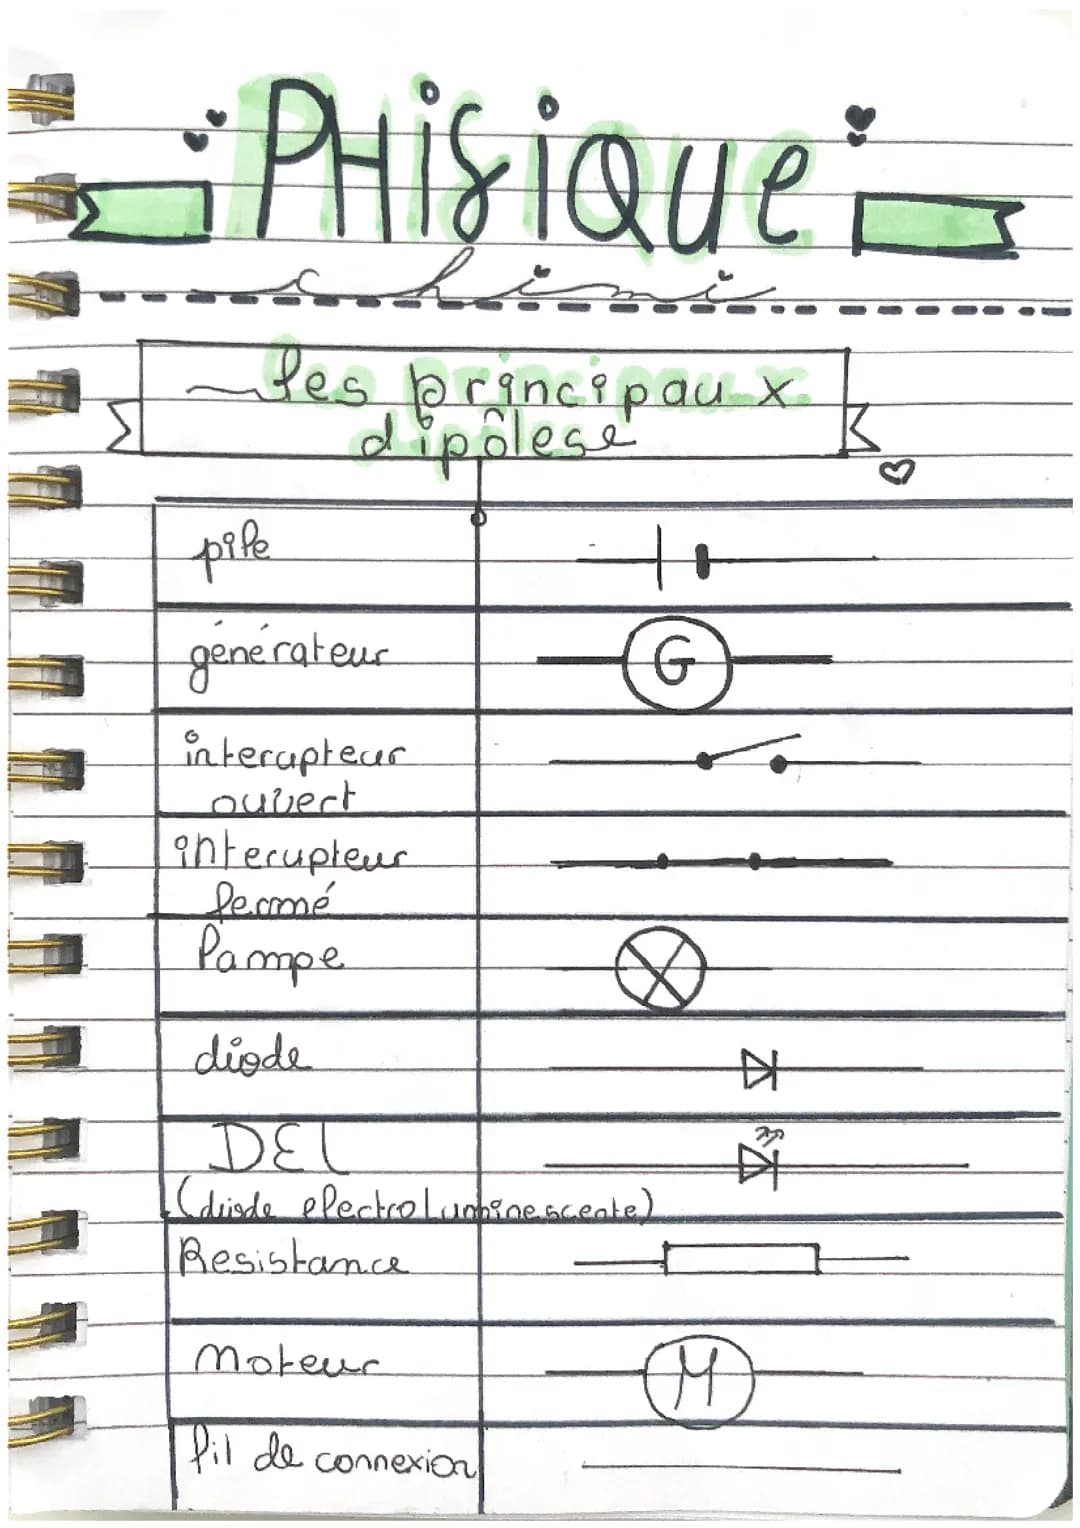 PHisique
chimi
les principaux
dipôlese
pile
générateur
G
interupteur
ouvert
interupteur
fermé
lampe
diode
DEL
(diode electroluminescente)
Resistance
Moteur
M
fil de connexion